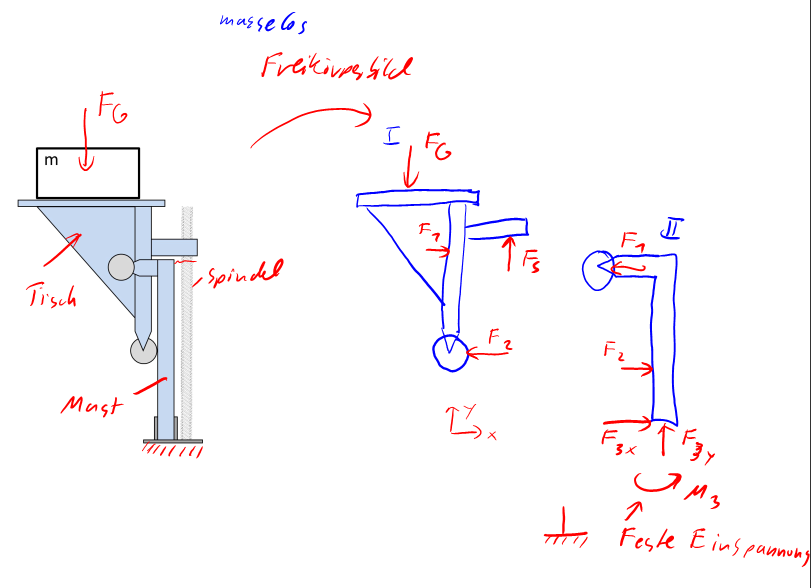 masselos
Freikörperbild
F_G
m
Tisch
Spindel
Mast
I
F_G
F_1
F_S
F_2
y
x
II
F_1
F_2
F_3x
F_3y
M_3
Feste Einspannung